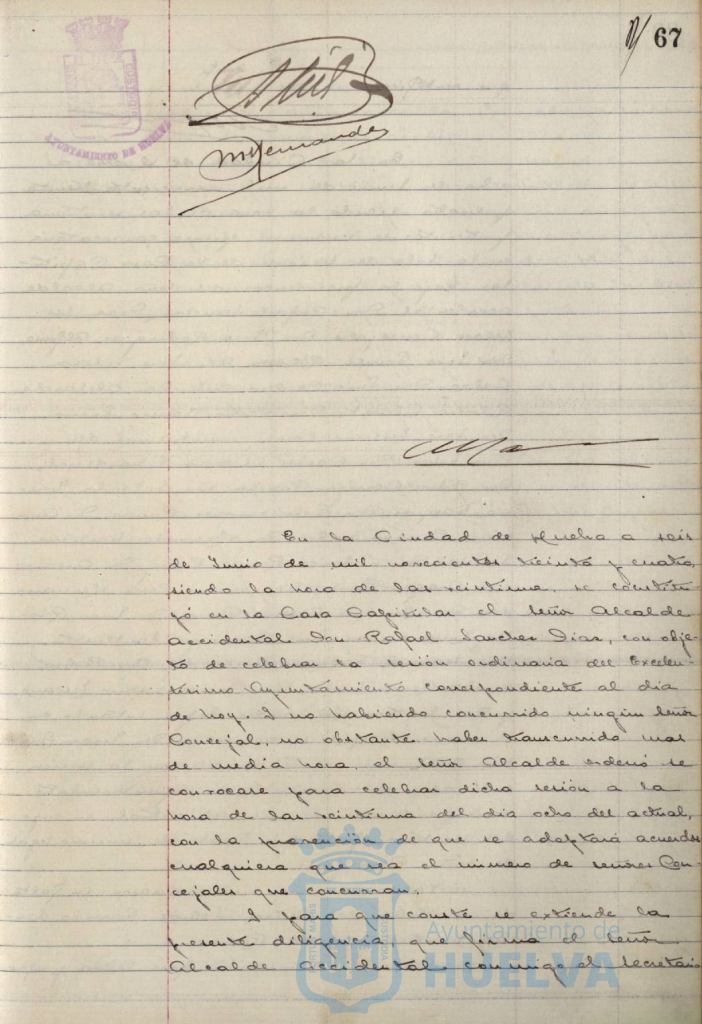 67
AYUNTAMIENTO DE HUELVA
MHernande
En la Ciudad de Huelva a seis
de Junio de mil novecientos treinta y cuatro,
siendo la hora de las veintiuna, se constitu-
yó en la Casa Capitular el Señor Alcalde
Accidental Don Rafael Sanchez Diaz, con obje-
to de celebrar la sesión ordinaria del Excelen-
tísimo Ayuntamiento correspondiente al dia
de hoy. I no habiendo concurrido ningún Señor
Concejal, no obstante haber transcurrido mas
de media hora, el Señor Alcalde ordenó se
convocase para celebrar dicha sesión a la
hora de las veintiuna del dia ocho del actual,
con la prevención de que se adoptará acuerdos
cualquiera que sea el número de señores Con-
cejales que concurran.
I para que conste se extiende la
presente diligencia, que firma el Señor
Alcalde Accidental conmigo el Secretario
Ayuntamiento de
HUELVA